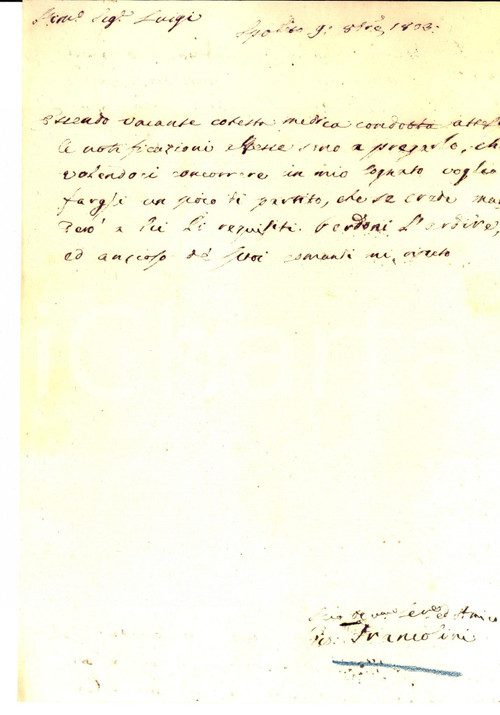 Sig.r Luigi
Spoleto 9: 8bre, 1803.
Essendo vacante cotesta medica condotta attese
le notificazioni affisse sino a pregarlo, che
volendoci concorrere un mio Cognato voglia
fargli un poco di partito, che se crede
però a Lei li requisiti. Perdoni l'ardire,
ed ansioso de' suoi comandi mi
ed Amico
Francolini
iCharta